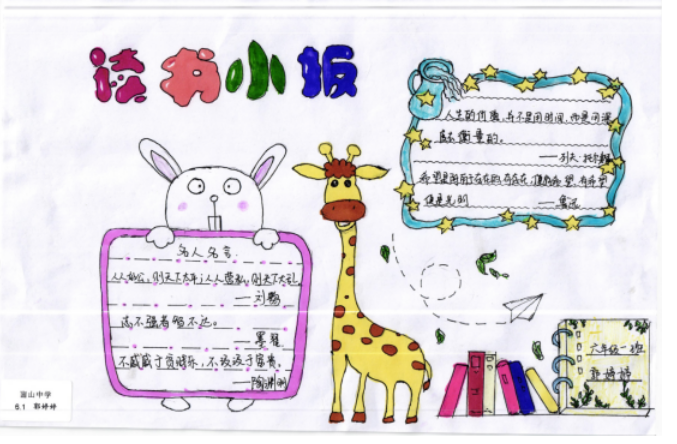 读书小报
人生的价值，并不是用时间，而是用深
度衡量的。
——列夫·托尔斯
有存在，便有希望，有希望
便是光明 ——鲁迅
名人名言
人人好公，则天下太平；人人营私，则天下大乱
——刘鹗
志不强者智不达。
——墨翟
不戚戚于贫贱，不汲汲于富贵。
——陶渊明
六年级一班
郭婷婷
山中学
6.1 郭婷婷